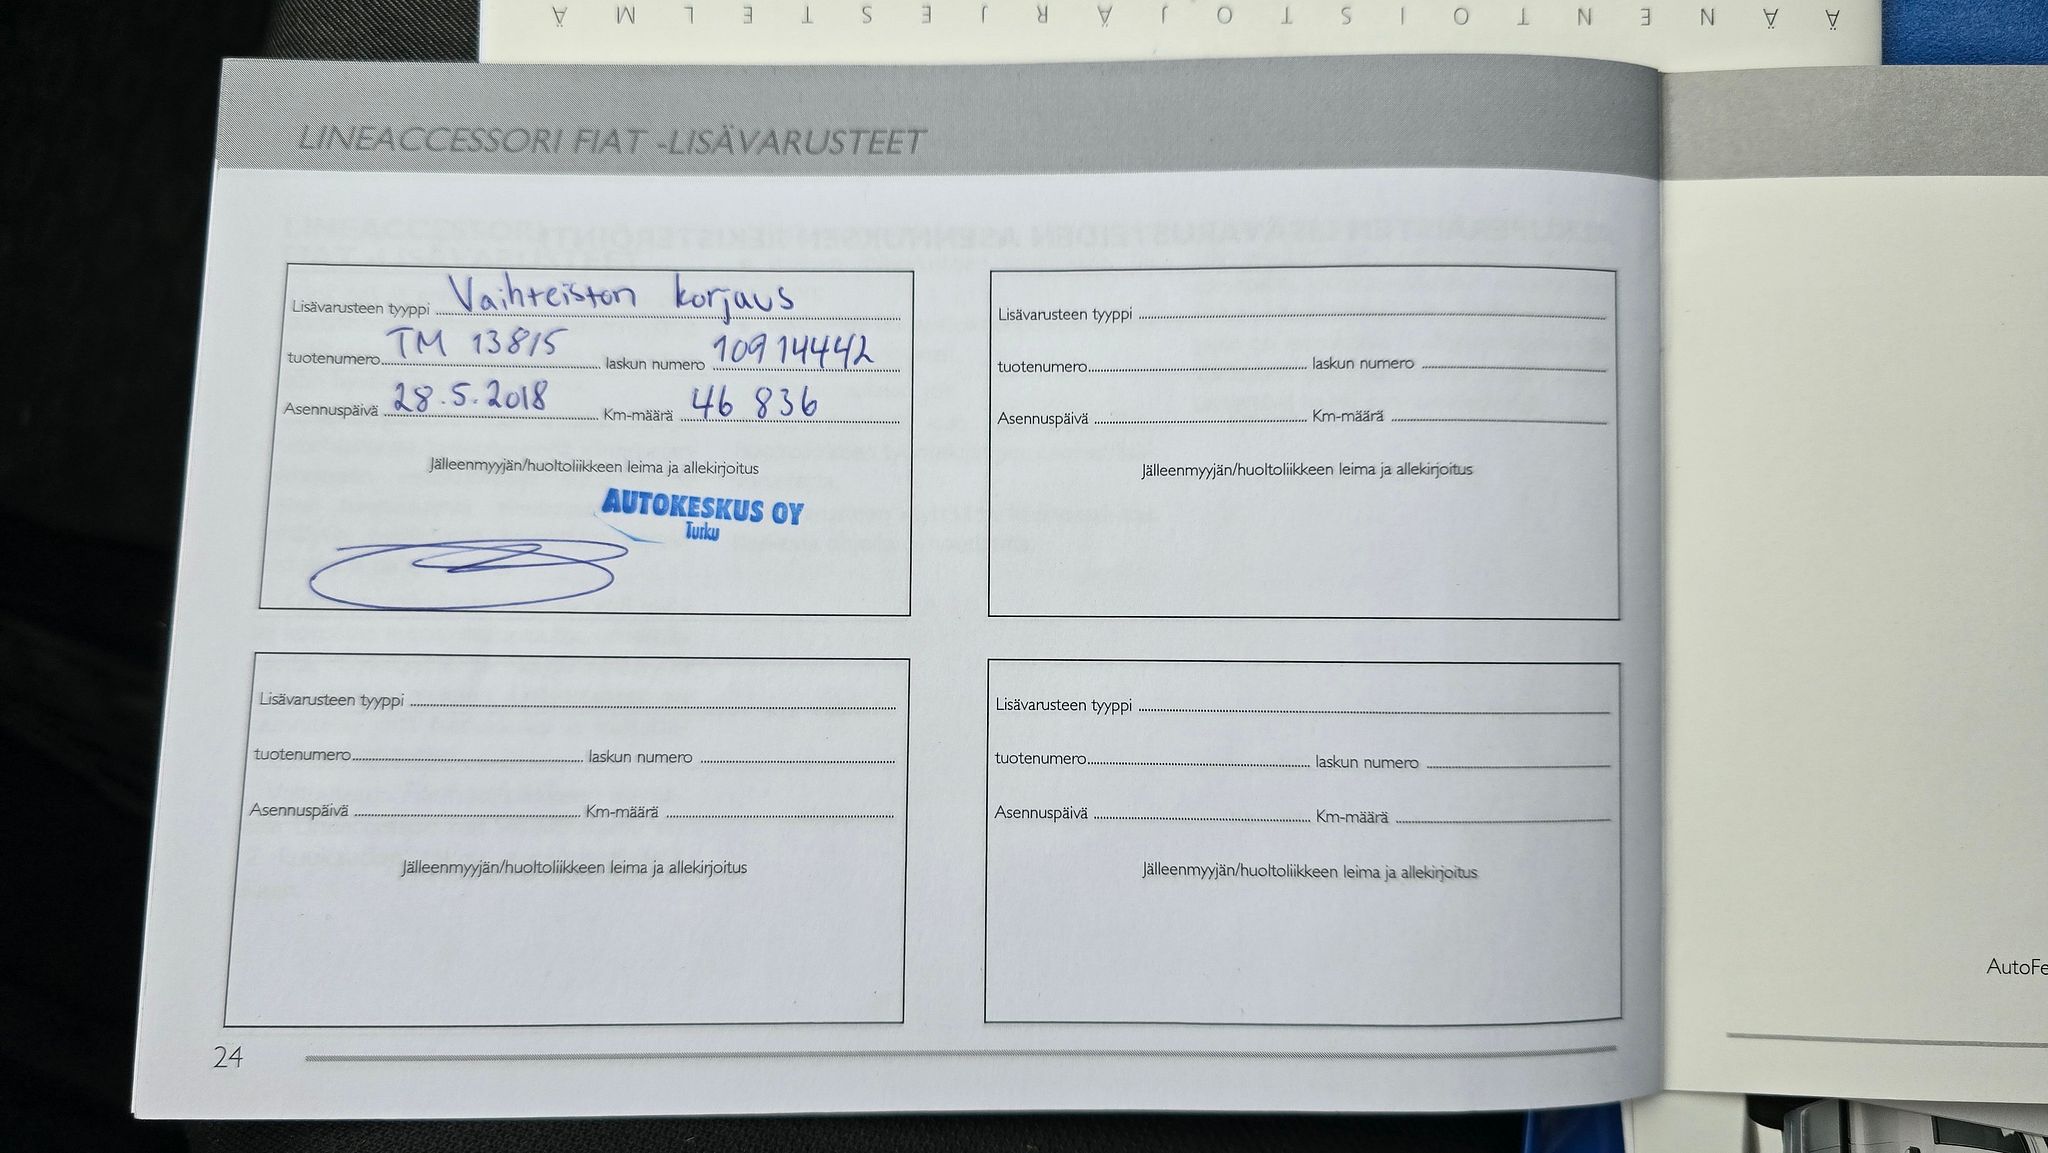 ÄÄNENTOISTOJÄRJESTELMÄ
LINEACCESSORI FIAT -LISÄVARUSTEET
Lisävarusteen tyyppi Vaihteiston korjaus
tuotenumero TM 13815 laskun numero 10914442
Asennuspäivä 28.5.2018 Km-määrä 46 836
Jälleenmyyjän/huoltoliikkeen leima ja allekirjoitus
AUTOKESKUS OY
Turku
Lisävarusteen tyyppi
tuotenumero laskun numero
Asennuspäivä Km-määrä
Jälleenmyyjän/huoltoliikkeen leima ja allekirjoitus
Lisävarusteen tyyppi
tuotenumero laskun numero
Asennuspäivä Km-määrä
Jälleenmyyjän/huoltoliikkeen leima ja allekirjoitus
Lisävarusteen tyyppi
tuotenumero laskun numero
Asennuspäivä Km-määrä
Jälleenmyyjän/huoltoliikkeen leima ja allekirjoitus
24
AutoFe